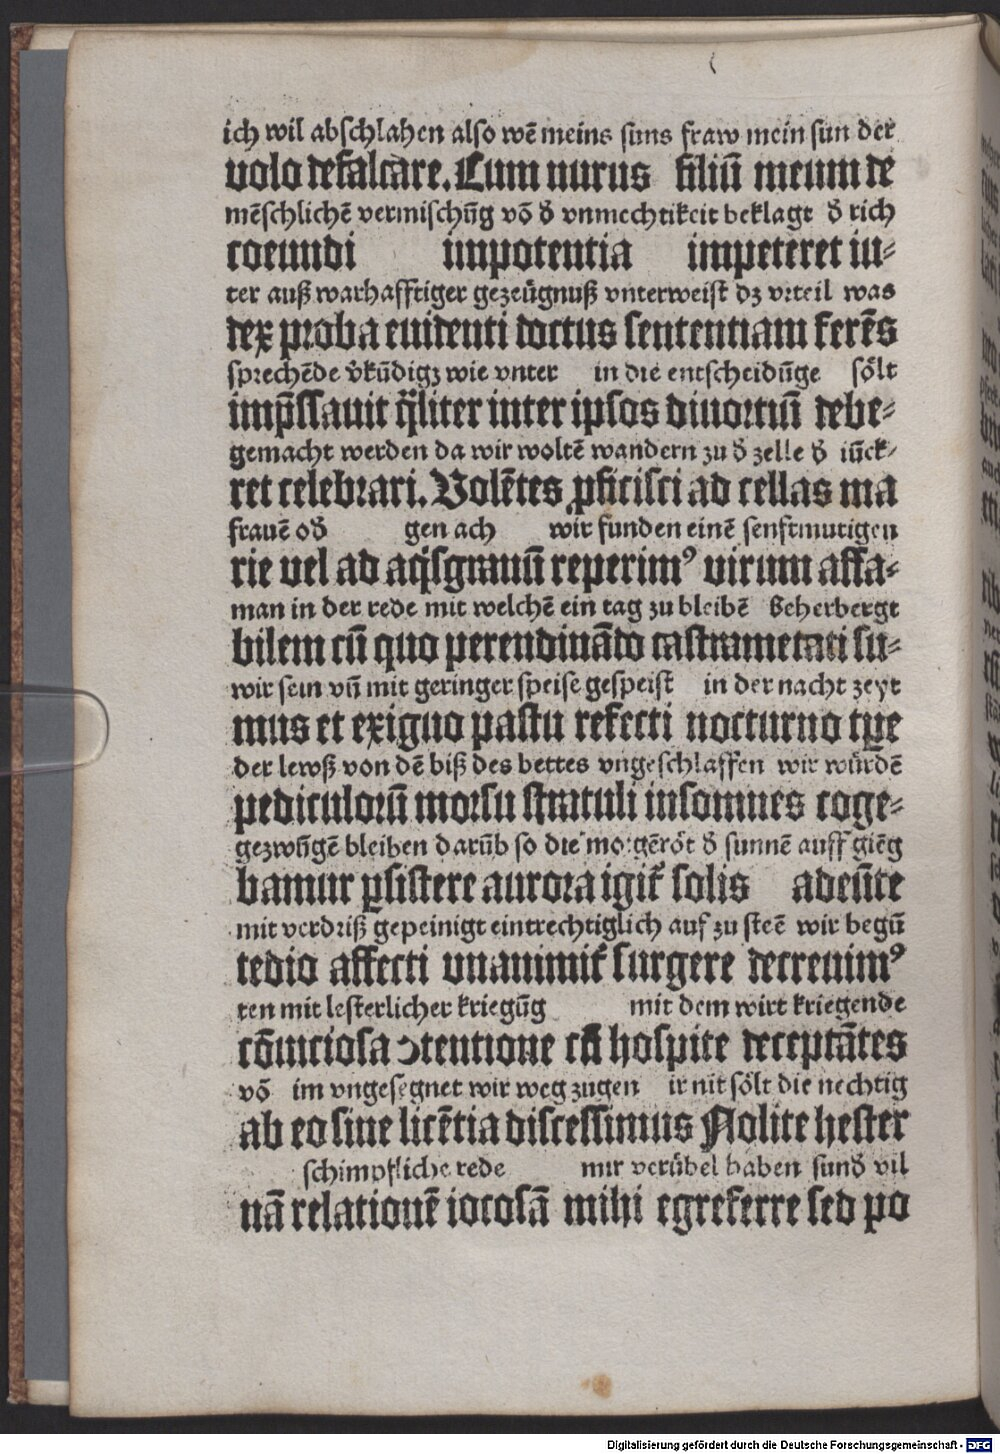 ich wil abschlahen also wē meins suns fraw mein sun der
volo defalcare. Cum nurus filiū meum de
mēschlichē vermischūg vō d̄ vnmechtikeit beklagt d̄ rich
coeundi impotentia impeteret iu⸗
ter auß warhafftiger gezeügnuß vnterweist dz vrteil was
dex proba euidenti doctus sententiam ferēs
sprechēde v̄kūdigz wie vnter in die entscheidūge sölt
imp̄ssauit q̄liter inter ipsos diuortiū debe⸗
gemacht werden da wir woltē wandern zu d̄ zelle d̄ iūck⸗
ret celebrari. Volētes ꝓficisci ad cellas ma
frauē od̄ gen ach wir funden einē senftmutigen
rie vel ad aq̄sgranū reperimꝰ virum affa⸗
man in der rede mit welchē ein tag zu bleibē Beherbergt
bilem cū quo perendināďo castrametati su⸗
wir sein vn̄ mit geringer speise gespeist in der nacht zeyt
mus et exiguo pastu refecti nocturno tꝑe
der lewß von dē biß des bettes vngeschlaffen wir würdē
pediculorū morsu stratuli insomnes coge⸗
gezwūgē bleiben darūb so die morgēröt d̄ sunnē auff giēg
bamur ꝑsistere aurora igit̄ solis adeūte
mit verdriß gepeinigt eintrechtiglich auf zu steē wir begū
tedio affecti vnanimit̄ surgere decreuimꝰ
ten mit lesterlicher kriegūg mit dem wirt kriegende
cōuiciosa ↄtentione cū hospite deceptātes
vō im vngesegnet wir weg zugen ir nit sölt die nechtig
ab eo sine licētia discessimus Nolite hester
schimpfliche rede mir verübel haben sund̄ vil
nā relationē iocosā mihi egreferre sed po
Digitalisierung gefördert durch die Deutsche Forschungsgemeinschaft - DFG